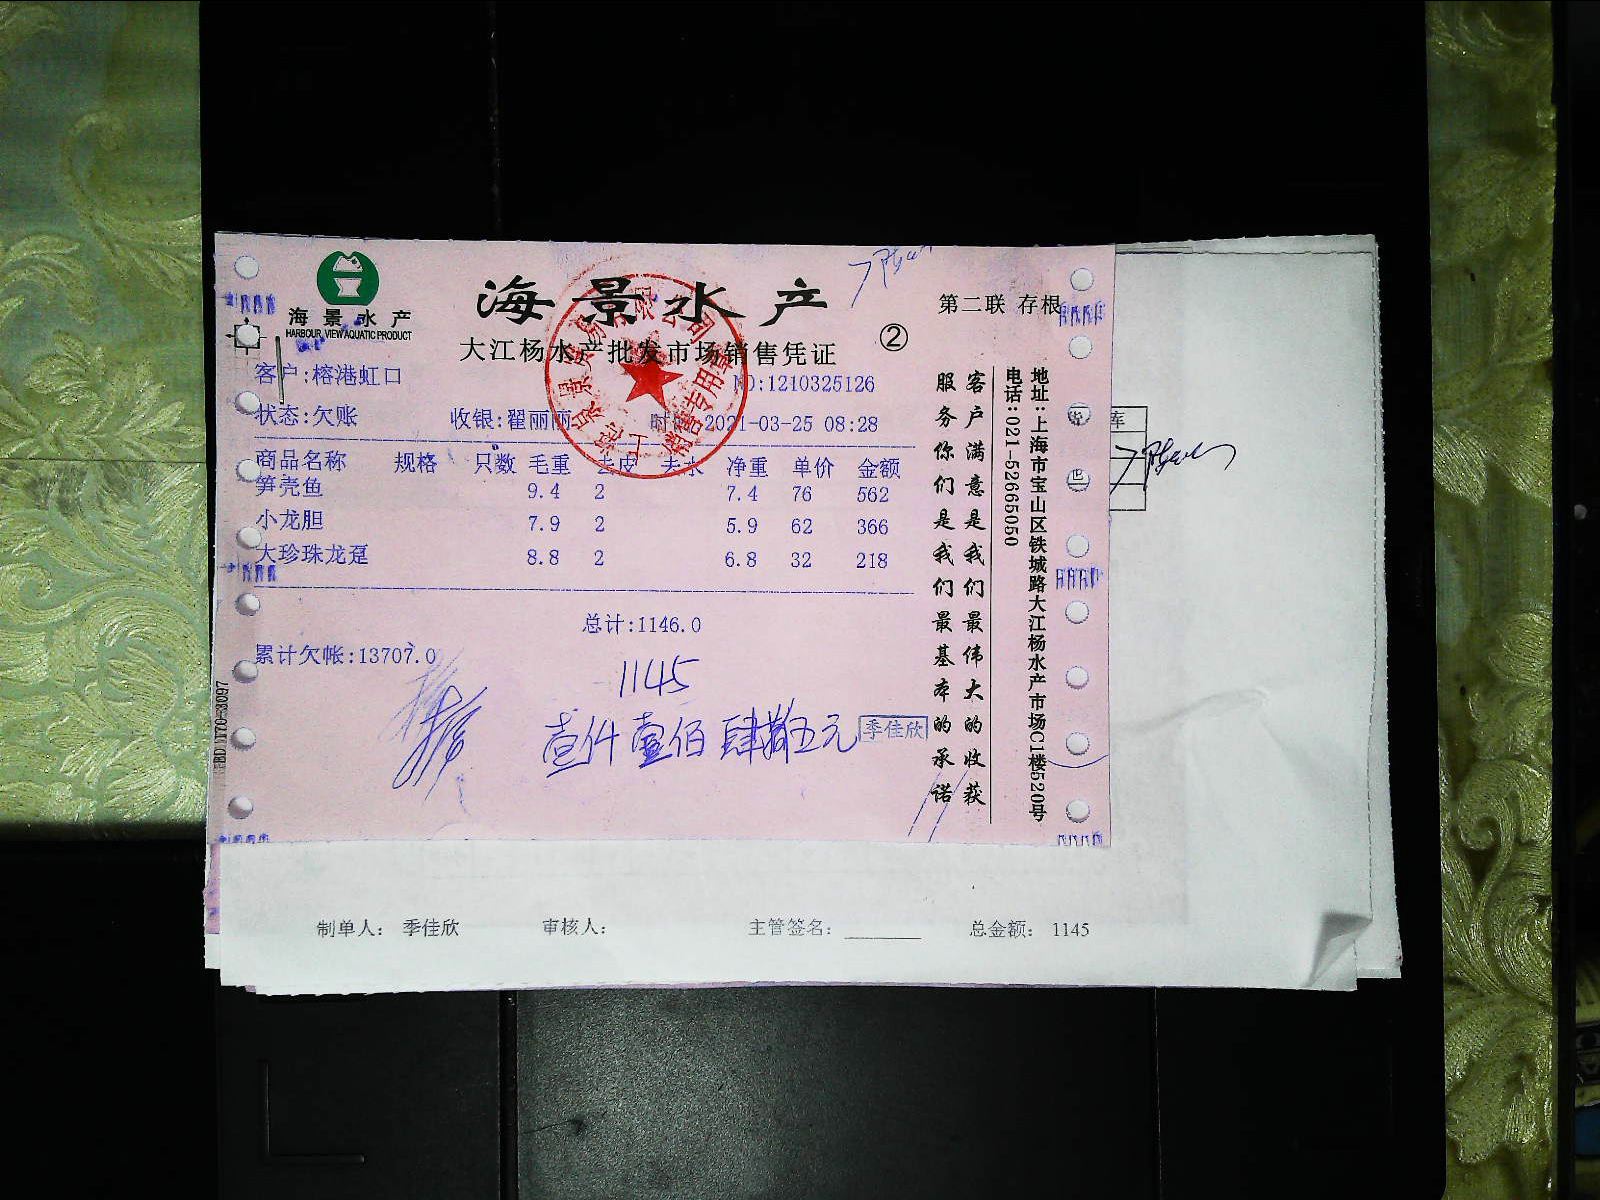 海景水产
HARBOUR VIEW AQUATIC PRODUCT
海景水产
第二联 存根
大江杨水产批发市场销售凭证
②
客户:榕港虹口
NO:1210325126
状态:欠账 收银:翟丽丽 时间:2021-03-25 08:28
商品名称 规格 只数 毛重 去皮 去水 净重 单价 金额
笋壳鱼 9.4 2 7.4 76 562
小龙胆 7.9 2 5.9 62 366
大珍珠龙趸 8.8 2 6.8 32 218
总计:1146.0
累计欠帐:13707.0
1145
壹仟壹佰肆拾五元
季佳欣
客户满意是我们最伟大的收获
服务你们是我们最基本的承诺
地址:上海市宝山区铁城路大江杨水产市场C1楼520号
电话:021-52665050
库
制单人: 季佳欣 审核人: 主管签名: 总金额: 1145